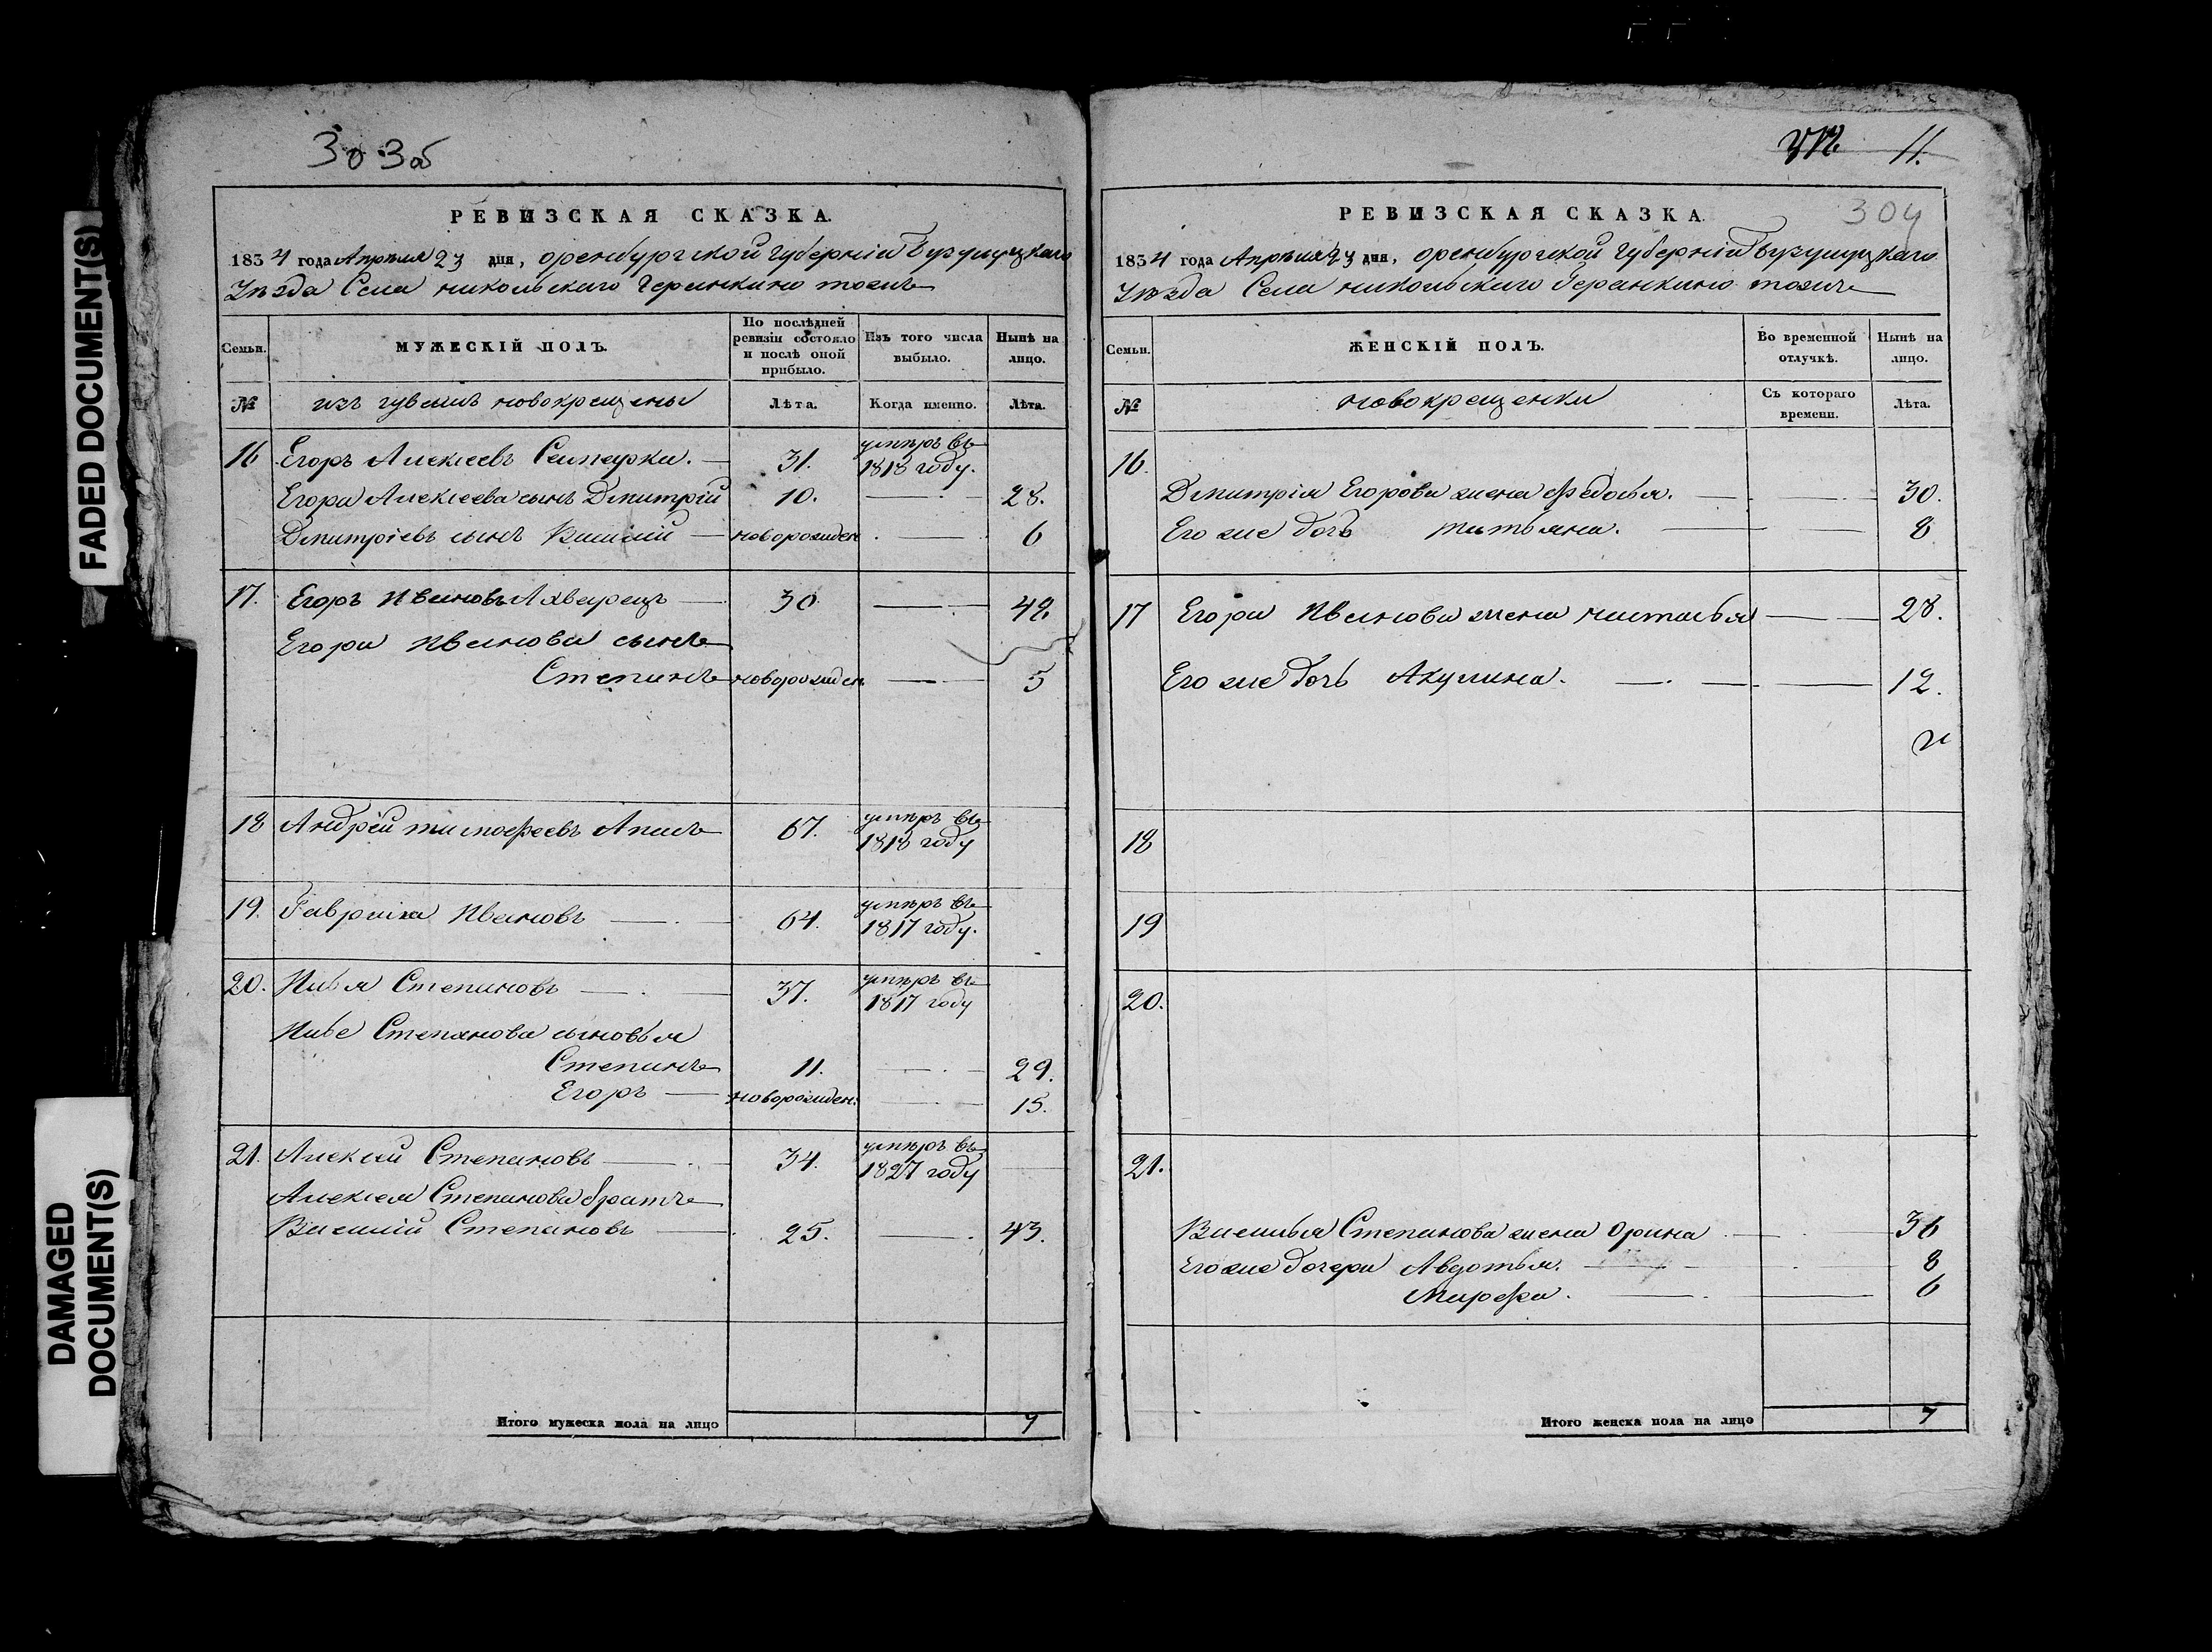 FADED DOCUMENT(S)
DAMAGED
DOCUMENT(S)
303об
РЕВИЗСКАЯ СКАЗКА.
1834 года Апреля 23 дня, оренбургской губернiи Бугульмскаго
Уѣзда Села никольскаго Черенкино тожъ
Семьи.
МУЖЕСКІЙ ПОЛЪ.
По послѣдней
ревизіи состояло
и послѣ оной
прибыло.
Изъ того числа
выбыло.
Нынѣ на
лицо.
№
изъ чувашъ новокрещены
Лѣта.
Когда именно.
Лѣта.
16 Егоръ Алексеевъ 31. умѣръ въ 1818 году.
Егора Алексеева сынъ Дмитрій 10. 28.
Дмитріевъ сынъ Василій новорожден. 6
17. Егоръ Ивановъ 30 48
Егора Иванова сынъ
Степанъ новорожден. 5
18 Андрей тимофеевъ 67. умѣръ въ 1818 году
19. Гаврила Ивановъ 64. умѣръ въ 1817 году.
20. Илья Степановъ 37. умѣръ въ 1817 году
Илье Степанова сыновья
Степанъ 11. 29.
Егоръ новорожден. 15.
21. Алексей Степановъ 34. умѣръ въ 1827 году
Алексея Степанова братъ
Василій Степановъ 25. 43.
Итого мужеска пола на лицо 7
11.
304
РЕВИЗСКАЯ СКАЗКА.
1834 года Апреля 23 дня, оренбургской губернiи Бугульмскаго
Уѣзда Села никольскаго Черенкино тожъ
Семьи.
ЖЕНСКІЙ ПОЛЪ.
Во временной
отлучкѣ.
Нынѣ на
лицо.
№
новокрещенки
Съ котораго
времени.
Лѣта.
16.
Дмитрія Егорова жена Федосья. 30.
Его же дочь татьяна. 8
17 Егора Иванова жена настасья 28.
Его же дочь Акулина. 12.
18
19
20.
21.
Василья Степанова жена Орина 36
Его же дочери Авдотья. 8
Марфа. 6
Итого женска пола на лицо 7